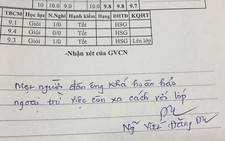 10 10.0 9.0 9.8 9.8 9.7
TBCM Học lực N.Nghỉ Hạnh kiểm Hạng DHTĐ KQHT
9.1 Giỏi 1/0 Tốt HSG
9.4 Giỏi 0/0 Tốt HSG
9.3 Giỏi 1/0 Tốt HSG Lên lớp
-Nhận xét của GVCN
Một người đàn ông khá hoàn hảo
ngoại trừ việc còn xa cách với lớp
Ngô Việt Đằng